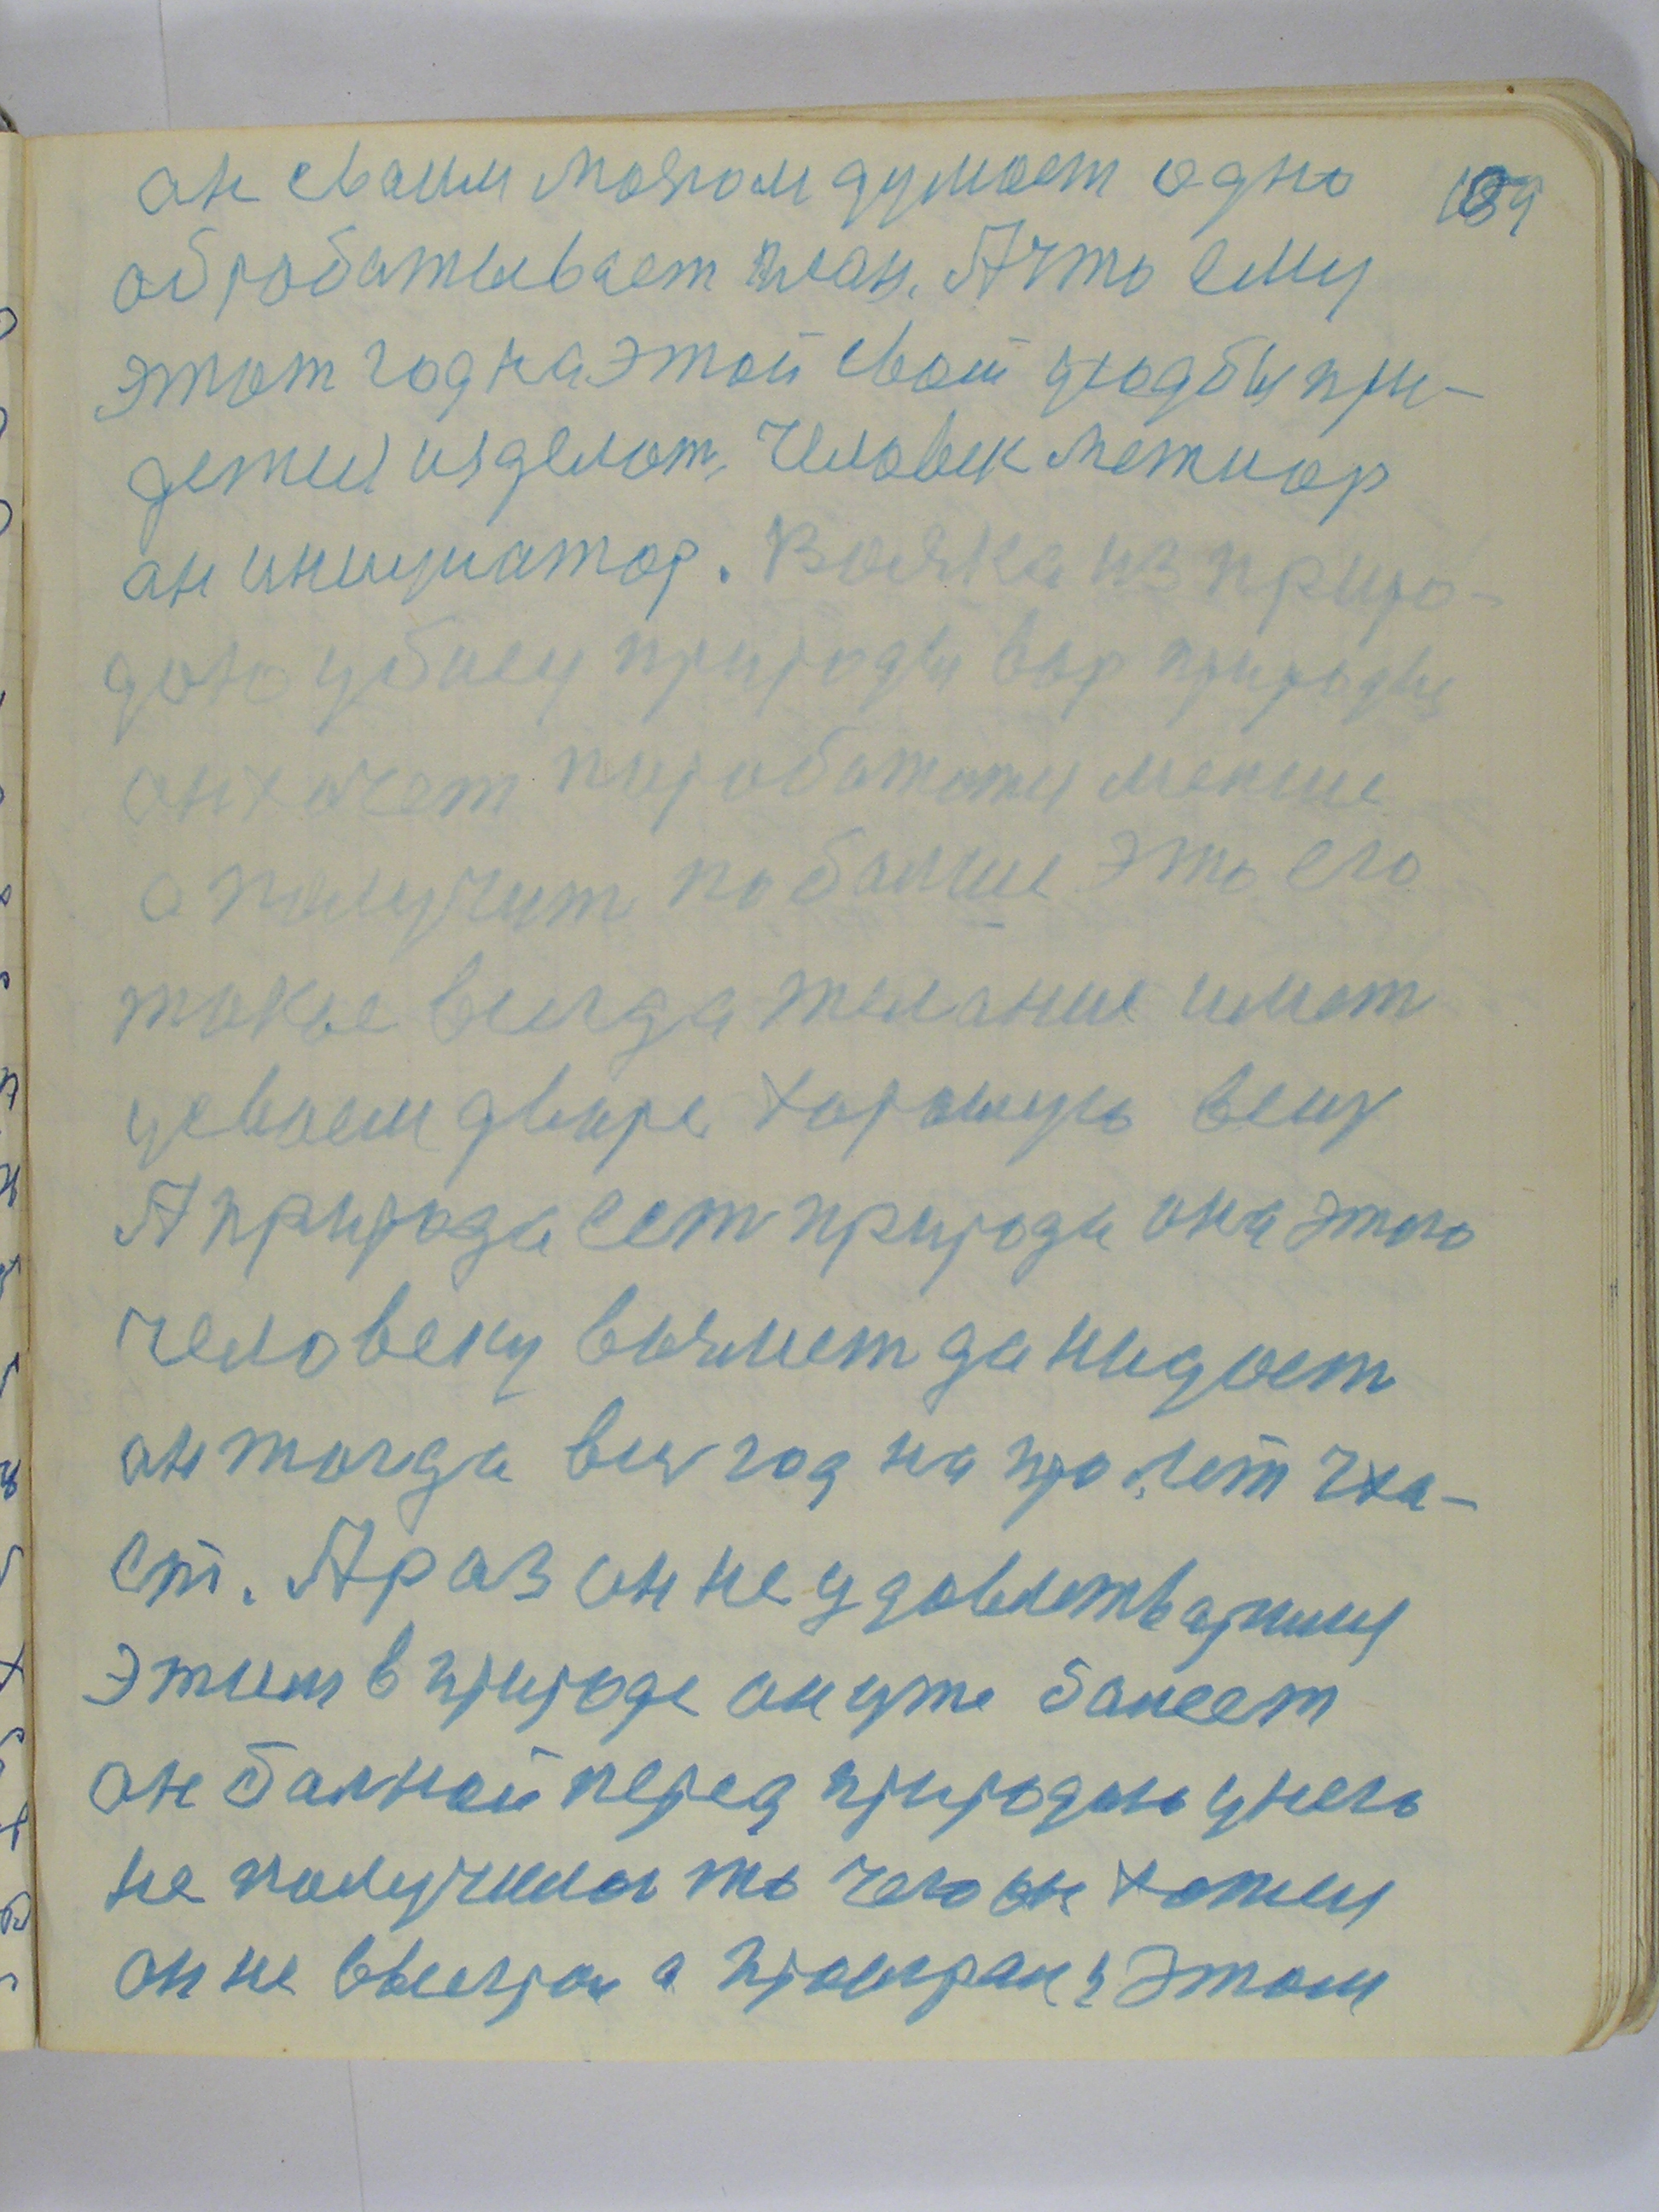 ан сваим мозгом думает одно 169
обробатывает план. А что ему
этот год на этой свой уходбы при-
детца изделат. Человек метиор
ан инициатор. Вояка из приро-
дою убицу природы вор природы
ан хочет поработать менше
а получит побалше это его
такое всигда желание имет
усваем дваре харошую вещ
А природа ест природа она этого
человеку возмет да нидаст
ан тогда вис год на про лет чха-
ет. А раз он не удовлетварилц
этим в природе он уже балеет
ан балной перед природою у него
не получилос то чего он хотел
ан не выеграл а проиграл з этом